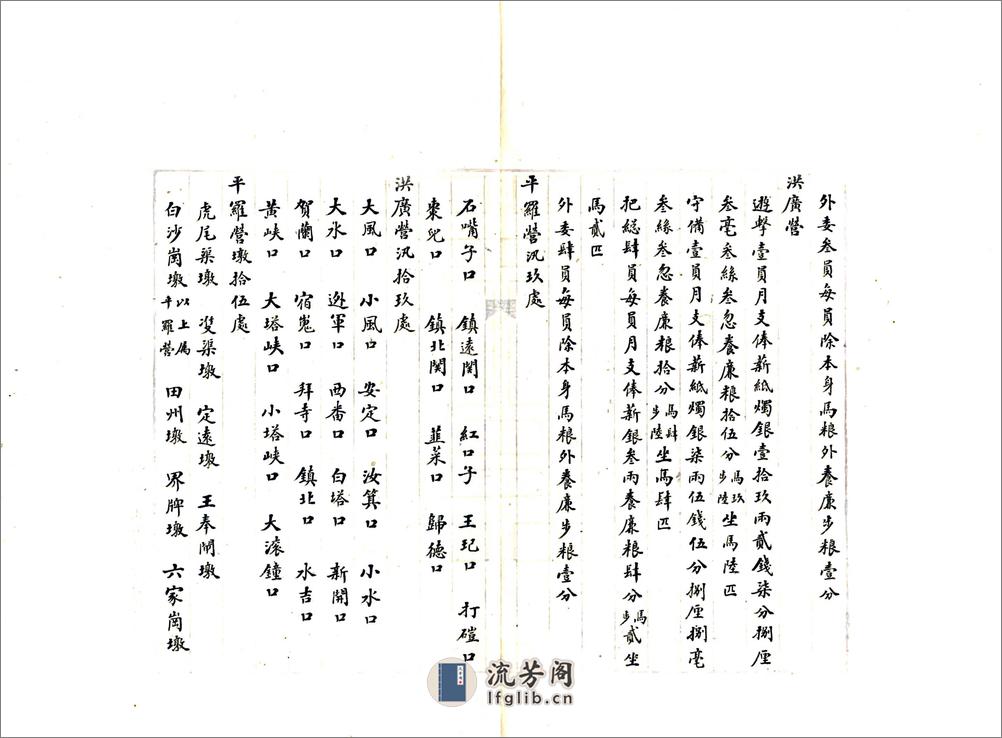 外委叁員每員除本身馬粮外養廉步粮壹分
洪廣營
遊擊壹員月支俸薪紙燭銀壹拾玖兩貳錢柒分捌厘
叁毫叁絲叁忽養廉粮拾伍分馬玖步陸坐馬陸匹
守備壹員月支俸薪紙燭銀柒兩伍錢伍分捌厘捌毫
叁絲叁忽養廉粮拾分馬肆步陸坐馬肆匹
把総肆員每員月支俸薪銀叁兩養廉粮肆分馬步貳坐
馬貳匹
外委肆員每員除本身馬粮外養廉步粮壹分
平羅營汛玖處
石嘴子口 鎮遠関口 紅口子 王玘口 打磑口
棗兒口 鎮北関口 韮菜口 歸德口
洪廣營汛拾玖處
大風口 小風口 安定口 汝箕口 小水口
大水口 迯軍口 西番口 白塔口 新開口
賀蘭口 宿嵬口 拜寺口 鎮北口 水吉口
黃峽口 大塔峽口 小塔峽口 大滚鐘口
平羅營墩拾伍處
虎尾渠墩 䨇渠墩 定遠墩 王奉閘墩
白沙崗墩以上属平羅營 田州墩 界牌墩 六家崗墩
流芳阁
lfglib.cn